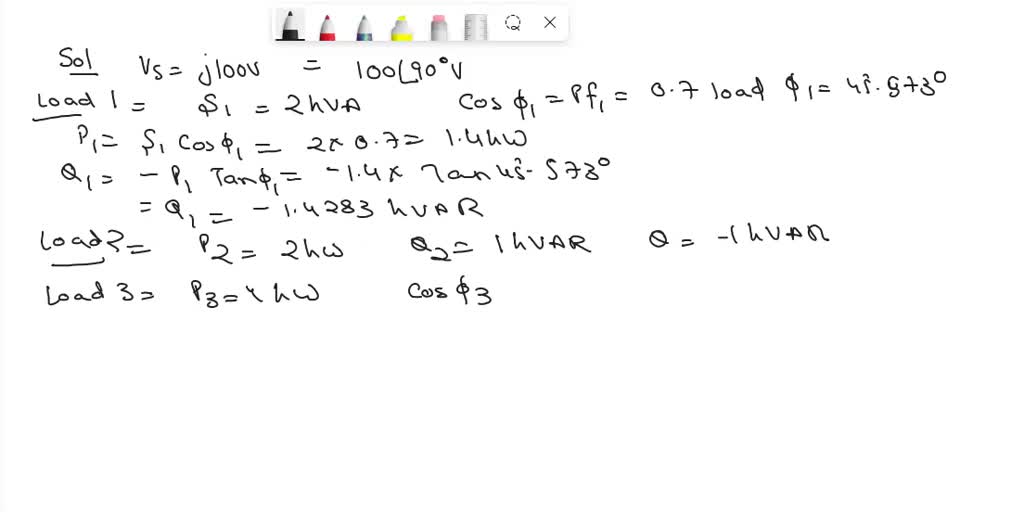 Sol Vs = j100V = 100∠90°V
Load 1 = S1 = 2kVA Cos ϕ1 = Pf1 = 0.7 load ϕ1 = 45.573°
P1 = S1 Cosϕ1 = 2x 0.7 = 1.4kW
Q1 = - P1 Tanϕ1 = -1.4x Tan 45.573°
= Q1 = - 1.4283 kVAR
Load 2 = P2 = 2kW Q2 = 1kVAR Q = -1kVAR
Load 3 = P3 = 4kW Cos ϕ3